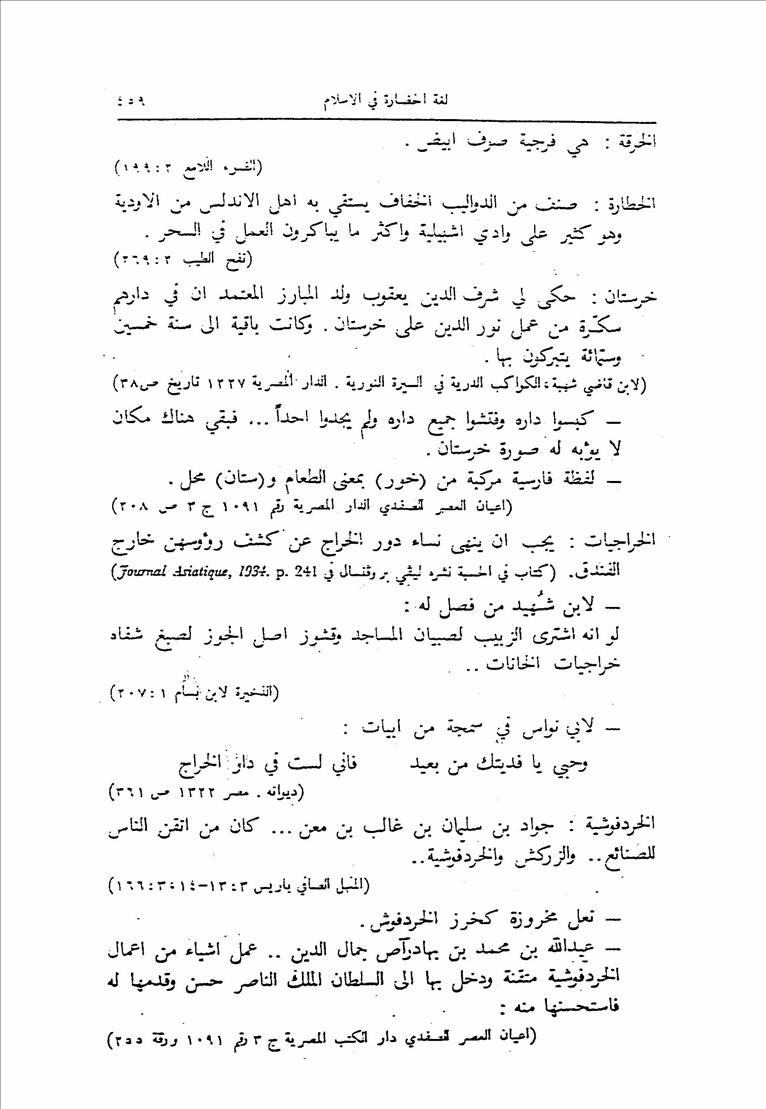 لغة الحضارة في الاسلام ٤٥٩
الخرقة : هي فرجية صوف ابيض .
(الضوء اللامع ٣ : ١٩٩)
الخطارة : صنف من الدواليب الخفاف يستقي به اهل الاندلس من الاودية
وهو كثير على وادي اشبيلية واكثر ما يباكرون العمل في السحر .
(نفح الطيب ٢ : ٢٦٩)
خرستان : حكى لي شرف الدين يعقوب ولد المبارز المعتمد ان في دارهم
سكرة من عمل نور الدين على خرستان . وكانت باقية الى سنة خمسين
وستمائة يتبركون بها .
(لابن قاضي شهبة : الكواكب الدرية في السيرة النورية . الدار المصرية ١٢٢٧ تاريخ ص٣٨)
– كبسوا داره وفتشوا جميع داره ولم يجدوا احداً ... فبقي هناك مكان
لا يؤبه له صورة خرستان .
– لفظة فارسية مركبة من (خور) بمعنى الطعام و(ستان) محل .
(اعيان العصر للصفدي الدار المصرية رقم ١٠٩١ ج ٣ ص ٢٠٨)
الخراجيات : يجب ان ينهى نساء دور الخراج عن كشف رؤوسهن خارج
الفندق. (كتاب في الحسبة نشره ليڤي بروڤنسال في Journal Asiatique, 1934. p. 241)
– لابن شُهيد من فصل له :
لو انه اشترى الزبيب لصبيان المساجد وقشوز اصل الجوز لصبغ شفاه
خراجيات الخانات ..
(الذخيرة لابن بسام ١ : ٢٠٧)
– لابي نواس في سمجة من ابيات :
وحبي يا فديتك من بعيد فاني لست في دار الخراج
(ديوانه . مصر ١٣٢٢ ص ٣٦١)
الخردفوشية : جواد بن سليمان بن غالب بن معن ... كان من اتقن الناس
للصنائع .. والزركش والخردفوشية ..
(المنهل الصافي باريس ٣ : ١٣-١٤ : ٣ : ١٦٦)
– تعل مخروزة كخرز الخردفوش .
– عبدالله بن محمد بن بهادرآص جمال الدين .. عمل اشياء من اعمال
الخردفوشية متقنة ودخل بها الى السلطان الملك الناصر حسن وقدمها له
فاستحسنها منه :
(اعيان العصر للصفدي دار الكتب المصرية ج ٣ رقم ١٠٩١ ورقة ٢٥٥)